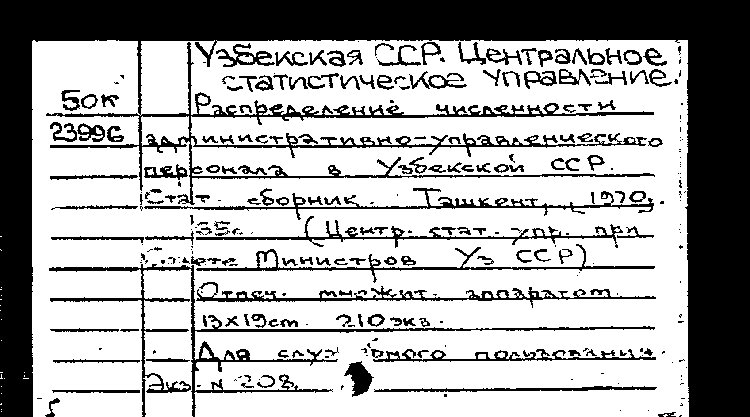 Узбекская ССР. Центральное
статистическое управление.
50к Распределение численности
23996 административно-управленческого
персонала в Узбекской ССР.
Стат. сборник. Ташкент, 1970.
35с. (Центр. стат. упр. при
Совете Министров Уз ССР)
Отпеч. множит. аппаратом.
13х19cm. 210 экз.
Для служебного пользования.
Экз. N 208.